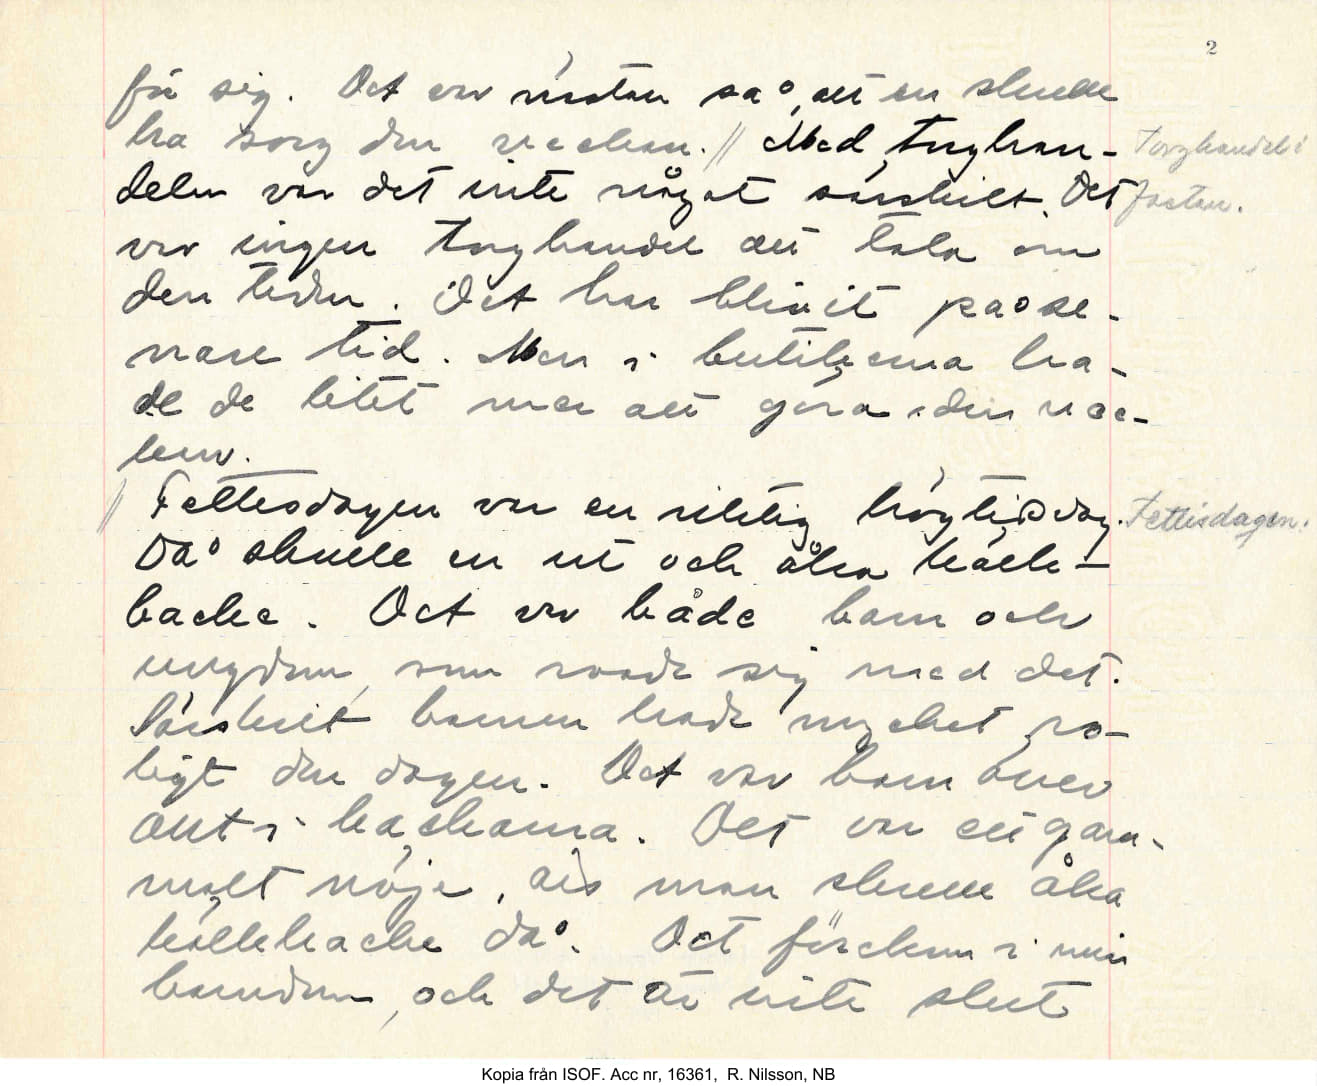 2
få sig. Det var nästan så, att en skulle
ha sorg den veckan. // Med torghan-
Torghandel i
deln var det inte något särskilt. Det
fastan.
var ingen torghandel att tala om
den tiden. Det har blivit på se-
nare tid. Men i butikerna ha-
de de litet mer att göra den vec-
kan.
// Fettisdagen var en riktig högtidsdag.
Fettisdagen.
Då skulle en ut och åka kälk-
backe. Det var både barn och
ungdom, som roade sig med det.
Särskilt barnen hade mycket ro-
ligt den dagen. Det var barn över
allt i backarna. Det var ett gam-
malt nöje, att man skulle åka
kälkbacke då. Det förekom i min
barndom, och det är inte slut
Kopia från ISOF. Acc nr, 16361, R. Nilsson, NB